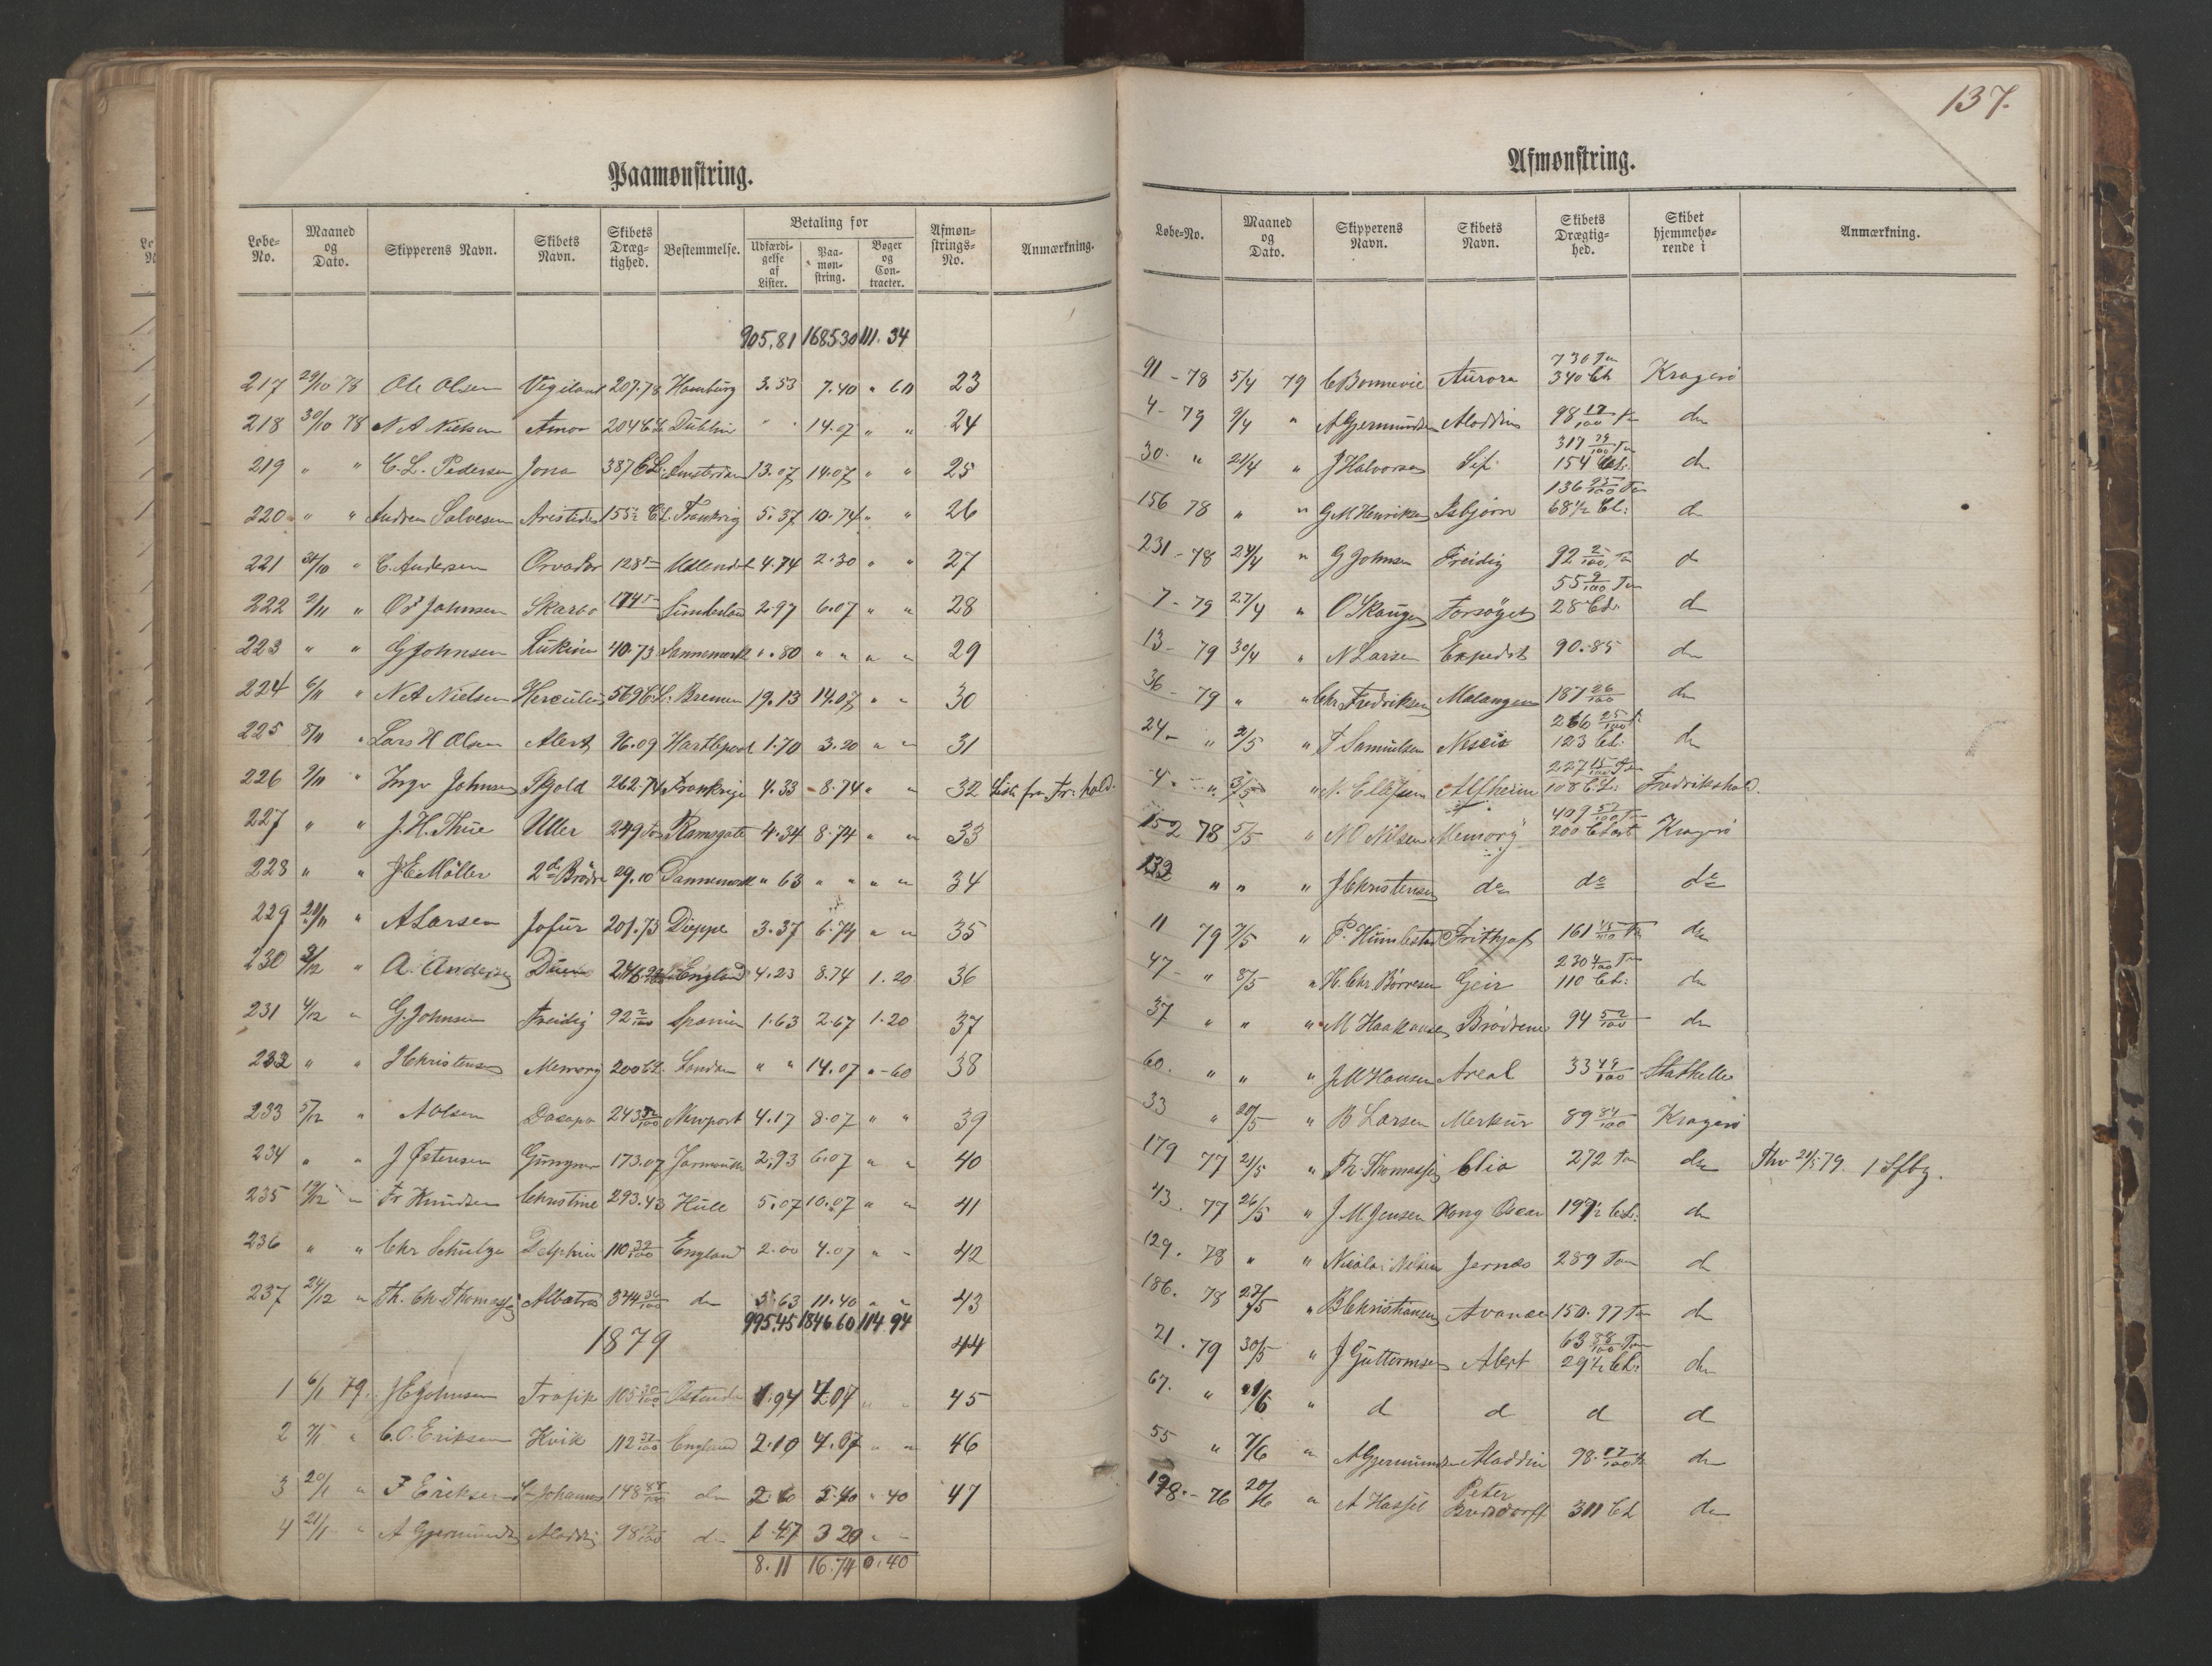 137.
Paamønstring.
Løbe-No. Maaned og Dato. Skipperens Navn. Skibets Navn. Skibets Dræg-tighed. Bestemmelse. Betaling for Udfærdi-gelse af Lister. Paa-møn-string. Bøger og Con-tracter. Afmøn-strings-No. Anmærkning.
905,81 1685.30 111.34
217 29/10 78 Ole Olsen Vigiland 207.78 Hamburg 3.53 7.40 " 60 23
218 30/10 78 N A Nielsen Amor 204 CL. Dublin " " 14.07 " " 24
219 " " C. L. Pedersen Jona 387 CL. Amsterdam 13.07 14.07 " " 25
220 " " Andreas Salvesen Aristides 155½ CL. Frankrig 5.37 10.74 " " 26
221 31/10 " C. Andersen Orvador 128 Udlendet 4.74 2.30 " " 27
222 2/11 " Os Johnsen Skarbo 174 Sunderland 2.97 6.07 " " 28
223 " " G Johnsen Lukine 40.73 Dannemark ". 80 " " " " 29
224 6/11 " N A Nielsen Hercules 569 CL. Bremen 19.13 14.07 " " 30
225 8/11 " Lars H Olsen Alert 96.09 Hartlepool 1.70 3.20 " " 31
226 9/11 " Ingv Johnsen Skjold 262.74 Frankrige 4.33 8.74 " " 32 List fra Fr:hald.
227 " " J. H. Thue Uller 249 Tons Ramsgate 4.34 8.74 " " 33
228 " " J E Møller 2de Brødre 29.10 Dannemark " 63 " " " " 34
229 20/11 " A Larsen Jofur 201.73 Dieppe 3.37 6.74 " " 35
230 3/12 " A. Andersen England 4.23 8.74 1.20 36
231 4/12 " G. Johnsen Freidig 92 2/100 Spanien 1.63 2.67 1.20 37
232 " " J Christensen Memory 200 CL. London " " 14.07 " 60 38
233 5/12 " A Olsen 243 52/100 Newport 4.17 8.07 " " 39
234 " " J Østensen Gungner 173.07 Jarmouth 2,93 6.07 " " 40
235 19/12 " Fr Knudsen Christine 293.43 Hull 5.07 10.07 " " 41
236 " " Chr Schulze Delphin 110 39/100 England 2.00 4.07 " " 42
237 24/12 " Th. Chr Thomassen Albatros 344 36/100 do 5.63 11.40 " " 43
995.45 1846.60 114.94
1879 44
1 6/1 79. J C Johnsen Trafik 105 30/100 Ostende 1.94 4.07 " " 45
2 7/1 " C. O. Eriksen Hvik 112 37/100 England 2.10 4.07 " " 46
3 20/1 " F Eriksen St Johannes 148 88/100 do 2.60 5.40 " 40 47
4 21/1 " A Gjermundsen Aladdin 98 17/100 do 1 47 3 20 " "
8.11 16.74 0.40
Afmønstring.
Løbe-No. Maaned og Dato. Skipperens Navn. Skibets Navn. Skibets Drægtig-hed. Skibet hjemmehø-rende i Anmærkning.
91 - 78 5/4 79 C Bonnevie Aurora 730 Ton 340 CL Kragerø
4 - 79 9/4 " A Gjermundsen Aladdin 98 17/100 Ton do
30. " 21/4 " J Halvorsen Sif 317 79/100 Ton 154 CL: do
156 78 " " G M Henriksen Isbjørn 136 95/100 Ton 68½ CL: do
231 - 78 24/4 " G Johnsen Freidig 92 2/100 Ton do
7 - 79 27/4 " O Skauge Forsøget 55 9/100 Ton 28 CL: do
13 - 79 30/4 " N Larsen Expedit 90.85 do
36 - 79 " " Chr Fredriksen Malangen 187 26/100 do
24 - " 2/5 " T Samuelsen Nescio 266 25/100 T 123 CL: do
4. " 3/5 " N. Ellefsen Alfheim 227 15/100 Ton 108 CL: Fredrikshald.
152 78 5/5 " N O Nilsen Memory 409 57/100 Ton 200 CLast Kragerø
132 " " " J Christensen do do do
11 79 7/5 " P. Humlestad Frithjof 161 Ton do
47 - " 8/5 " H. Chr. Børresen Geir 230 4/100 Ton 110 CL: do
37 " " " M Haakonsen Brødrene 94 52/100 do
60. " " " J M Hansen Areal 33 49/100 Stathelle
33 " 20/5 " B Larsen Merkur 89 84/100 Kragerø
179 77 21/5 " Th: Thomassen Clio 272 Ton do Thv 21/5 79. 1 Sfbg.
43. 77 26/5 " J M Jensen Kong Oscar 197½ CL: do
129. 78 " " Nicolai Nilsen Jernæs 289 Ton do
186. 78 27/5 " B Christiansen Avance 150.97 Ton do
21. 79 30/5 " J Guttormsen Alert 63 88/100 Ton 29½ CL: do
67. " 1/6 " d d d d
55 " 7/6 " A Gjermundsen Aladdin 98. 17/100 T do
198. - 76 20/6 " A Hassel Peter 311 CL do